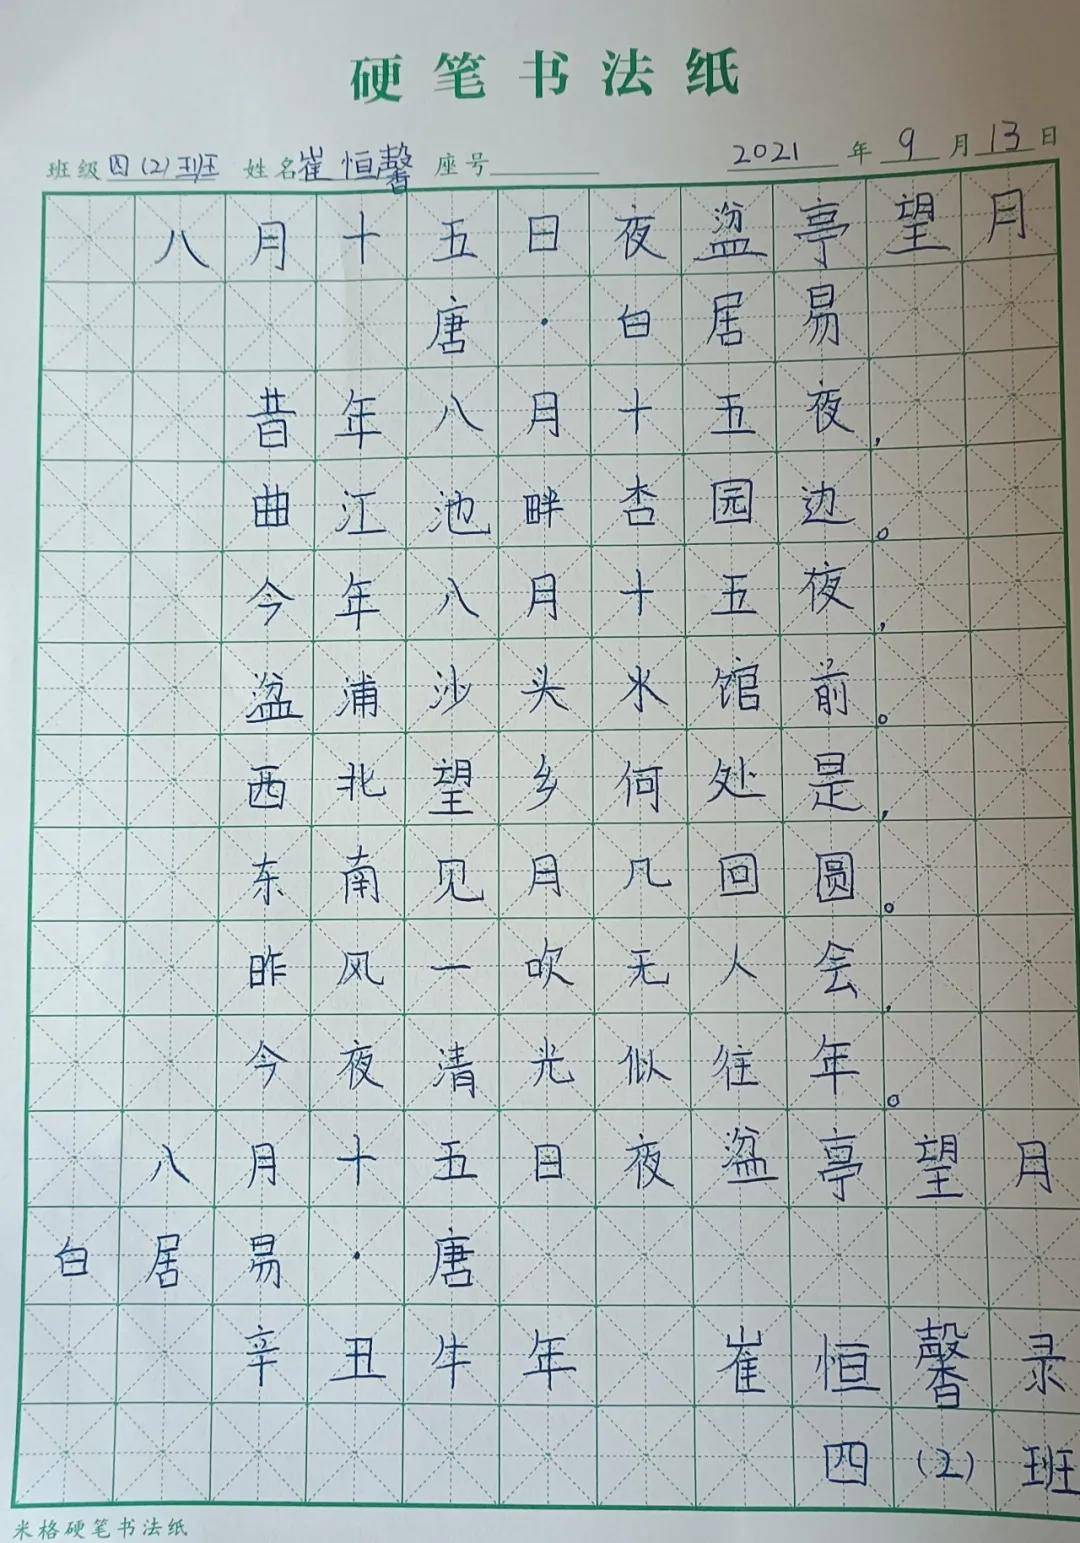 硬笔书法纸
班级 四(2)班 姓名 崔恒馨 座号 2021年9月13日
八月十五日夜湓亭望月
唐·白居易
昔年八月十五夜，
曲江池畔杏园边。
今年八月十五夜，
湓浦沙头水馆前。
西北望乡何处是，
东南见月几回圆。
昨风一吹无人会，
今夜清光似往年。
八月十五日夜湓亭望月
白居易·唐
辛丑牛年 崔恒馨录
四(2)班
米格硬笔书法纸